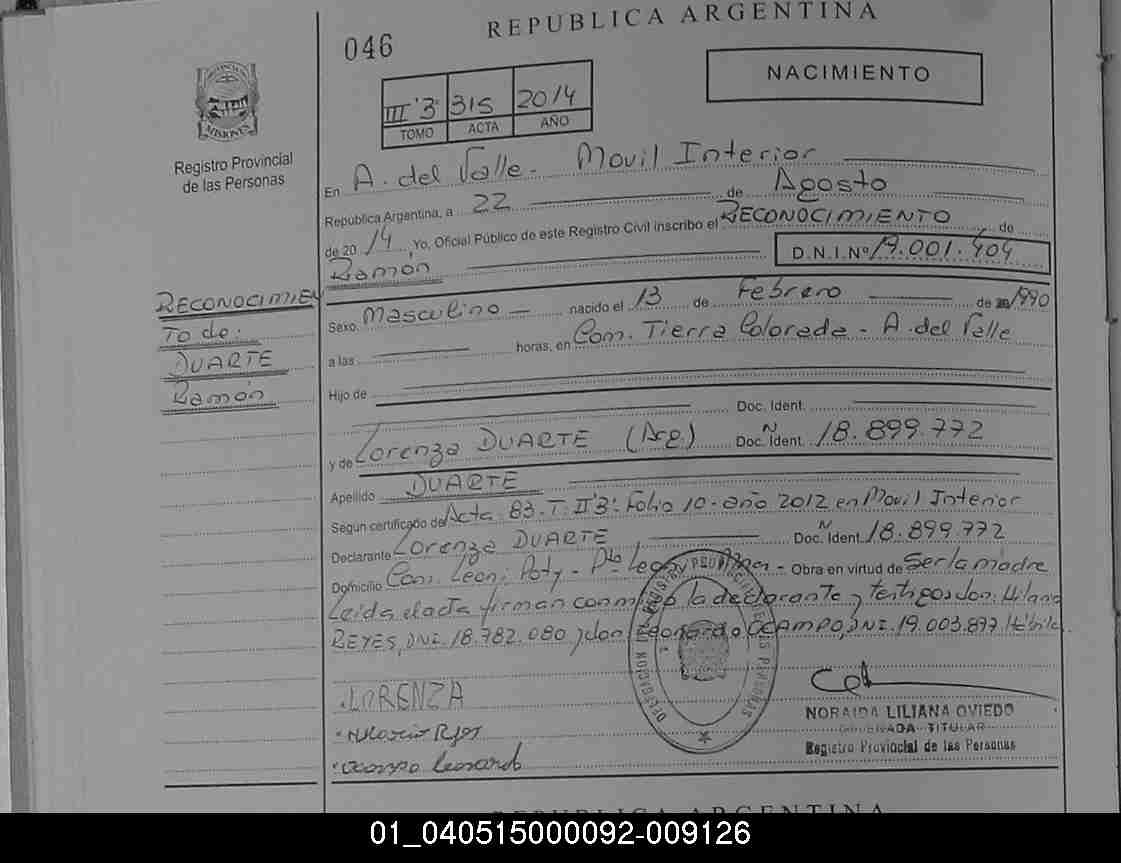 REPUBLICA ARGENTINA
046
NACIMIENTO
PROVINCIA DE
MISIONES
Registro Provincial
de las Personas
III "3" 315 2014
TOMO ACTA AÑO
En A. del Valle - Movil Interior
República Argentina, a 22 de Agosto
de 2014 Yo, Oficial Público de este Registro Civil inscribo el RECONOCIMIENTO de
Ramón D.N.I.Nº 19.001.404
RECONOCIMIEN
To de:
DUARTE
Ramón
Sexo Masculino nacido el 13 de Febrero de 1990
a las horas, en Com. Tierra Colorada - A. del Valle
Hijo de
Doc. Ident.
y de Lorenza DUARTE (Arg.) Doc. Ident. N 18.899.772
Apellido DUARTE
Según certificado de Acta 83. T. II "3" Folio 10 - año 2012 en Movil Interior
Declarante Lorenza DUARTE Doc. Ident. N 18.899.772
Domicilio Com. Leoni Poty - Pto Leoni - Obra en virtud de Ser la madre
Leida el acta firman conmigo la declarante y testigos don: Hilario
REYES, DNI. 18.782.080 y don Leonardo OCAMPO, DNI. 19.003.877 Hábiles.
DELEGACION REGISTRO PROVINCIAL DE LAS PERSONAS
LORENZA
Ocampo Leonardo
NORAIDA LILIANA OVIEDO
DELEGADA TITULAR
Registro Provincial de las Personas
REPUBLICA ARGENTINA
01_040515000092-009126